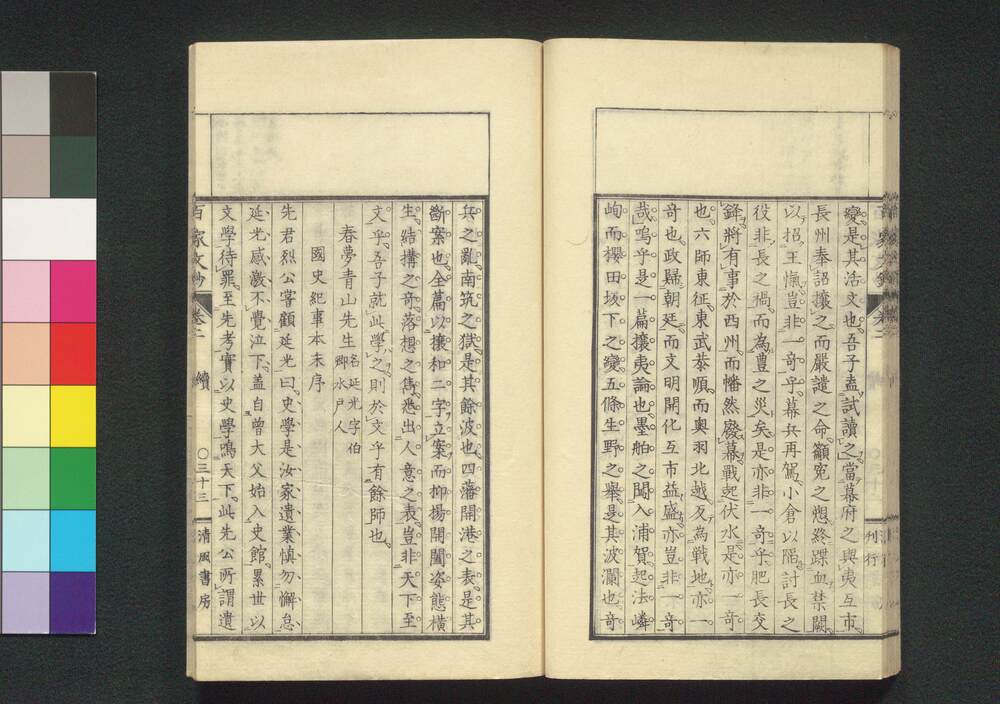 變是其活文也吾子盍試讀之當幕府之與夷互市
長州奉詔攘之而嚴譴之命籲寃之愬終蹀血禁闕
以招王愾豈非一奇乎幕兵再駕小倉以陷討長之
役非長之禍而為豊之災矣是亦非一奇乎肥長交
鋒將有事於西州而幡然廢幕戰起伏水是亦一奇
也六師東征東武恭順而奥羽北越反為戰地亦一
奇也政歸朝廷而文明開化互市益盛亦豈非一奇
哉嗚乎是一篇攘夷論也墨舶之闖入浦賀起法嶙
峋而櫻田坂下之變五條生野之舉是其波瀾也奇
刊行
兵之亂南筑之獄是其餘波也四藩開港之表是其
斷案也全篇以攘和二字立案而抑揚開闔姿態橫
生結搆之奇落想之雋悉出人意之表豈非天下至
文乎吾子就此學之則於文乎有餘師也
春夢青山先生 名延光字伯卿水戸人
國史紀事本末序
先君烈公嘗顧延光曰史學是汝家遺業慎勿懈怠
延光感激不覺泣下蓋自曾大父始入史館累世以
文學待罪至先考實以史學鳴天下此先公所謂遺
百家文鈔 卷二 續 〇三十三 清風書房